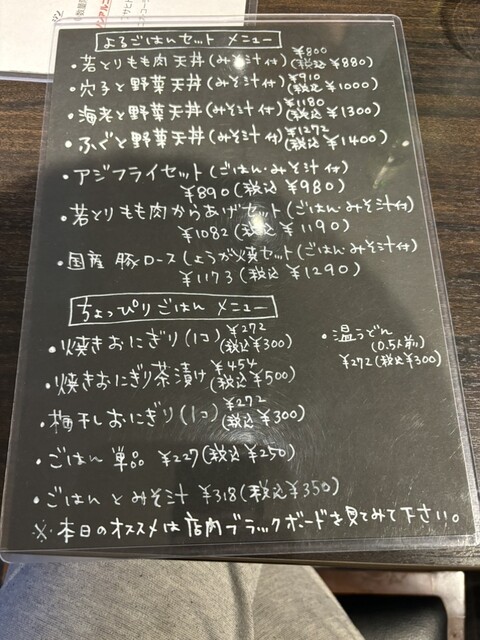 よるごはんセット メニュー
・若とりもも肉 天丼(みそ汁付) ¥800 (税込 ¥880)
・穴子と野菜天丼(みそ汁付) ¥910 (税込 ¥1000)
・海老と野菜天丼(みそ汁付) ¥1180 (税込 ¥1300)
・ふぐと野菜天丼(みそ汁付) ¥1272 (税込 ¥1400)
・アジフライセット(ごはん・みそ汁付)
¥890(税込 ¥980)
・若とりもも肉からあげセット(ごはん・みそ汁付)
¥1082(税込 ¥1190)
・国産 豚ロースしょうが焼セット(ごはん・みそ汁付)
¥1173(税込 ¥1290)
ちょっぴりごはん メニュー
・焼きおにぎり(1コ) ¥272 (税込 ¥300)
・温うどん
(0.5人前)
¥272(税込 ¥300)
・焼きおにぎり茶漬け ¥454 (税込 ¥500)
・梅干しおにぎり(1コ) ¥272 (税込 ¥300)
・ごはん 単品 ¥227(税込 ¥250)
・ごはんとみそ汁 ¥318(税込 ¥350)
※本日のオススメは店内ブラックボードを見てみて下さい。